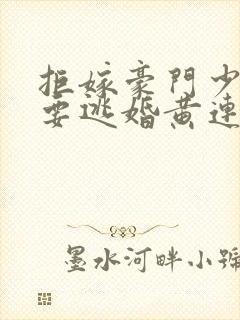 拒嫁豪門少
要逃婚黄連
墨水河畔小號